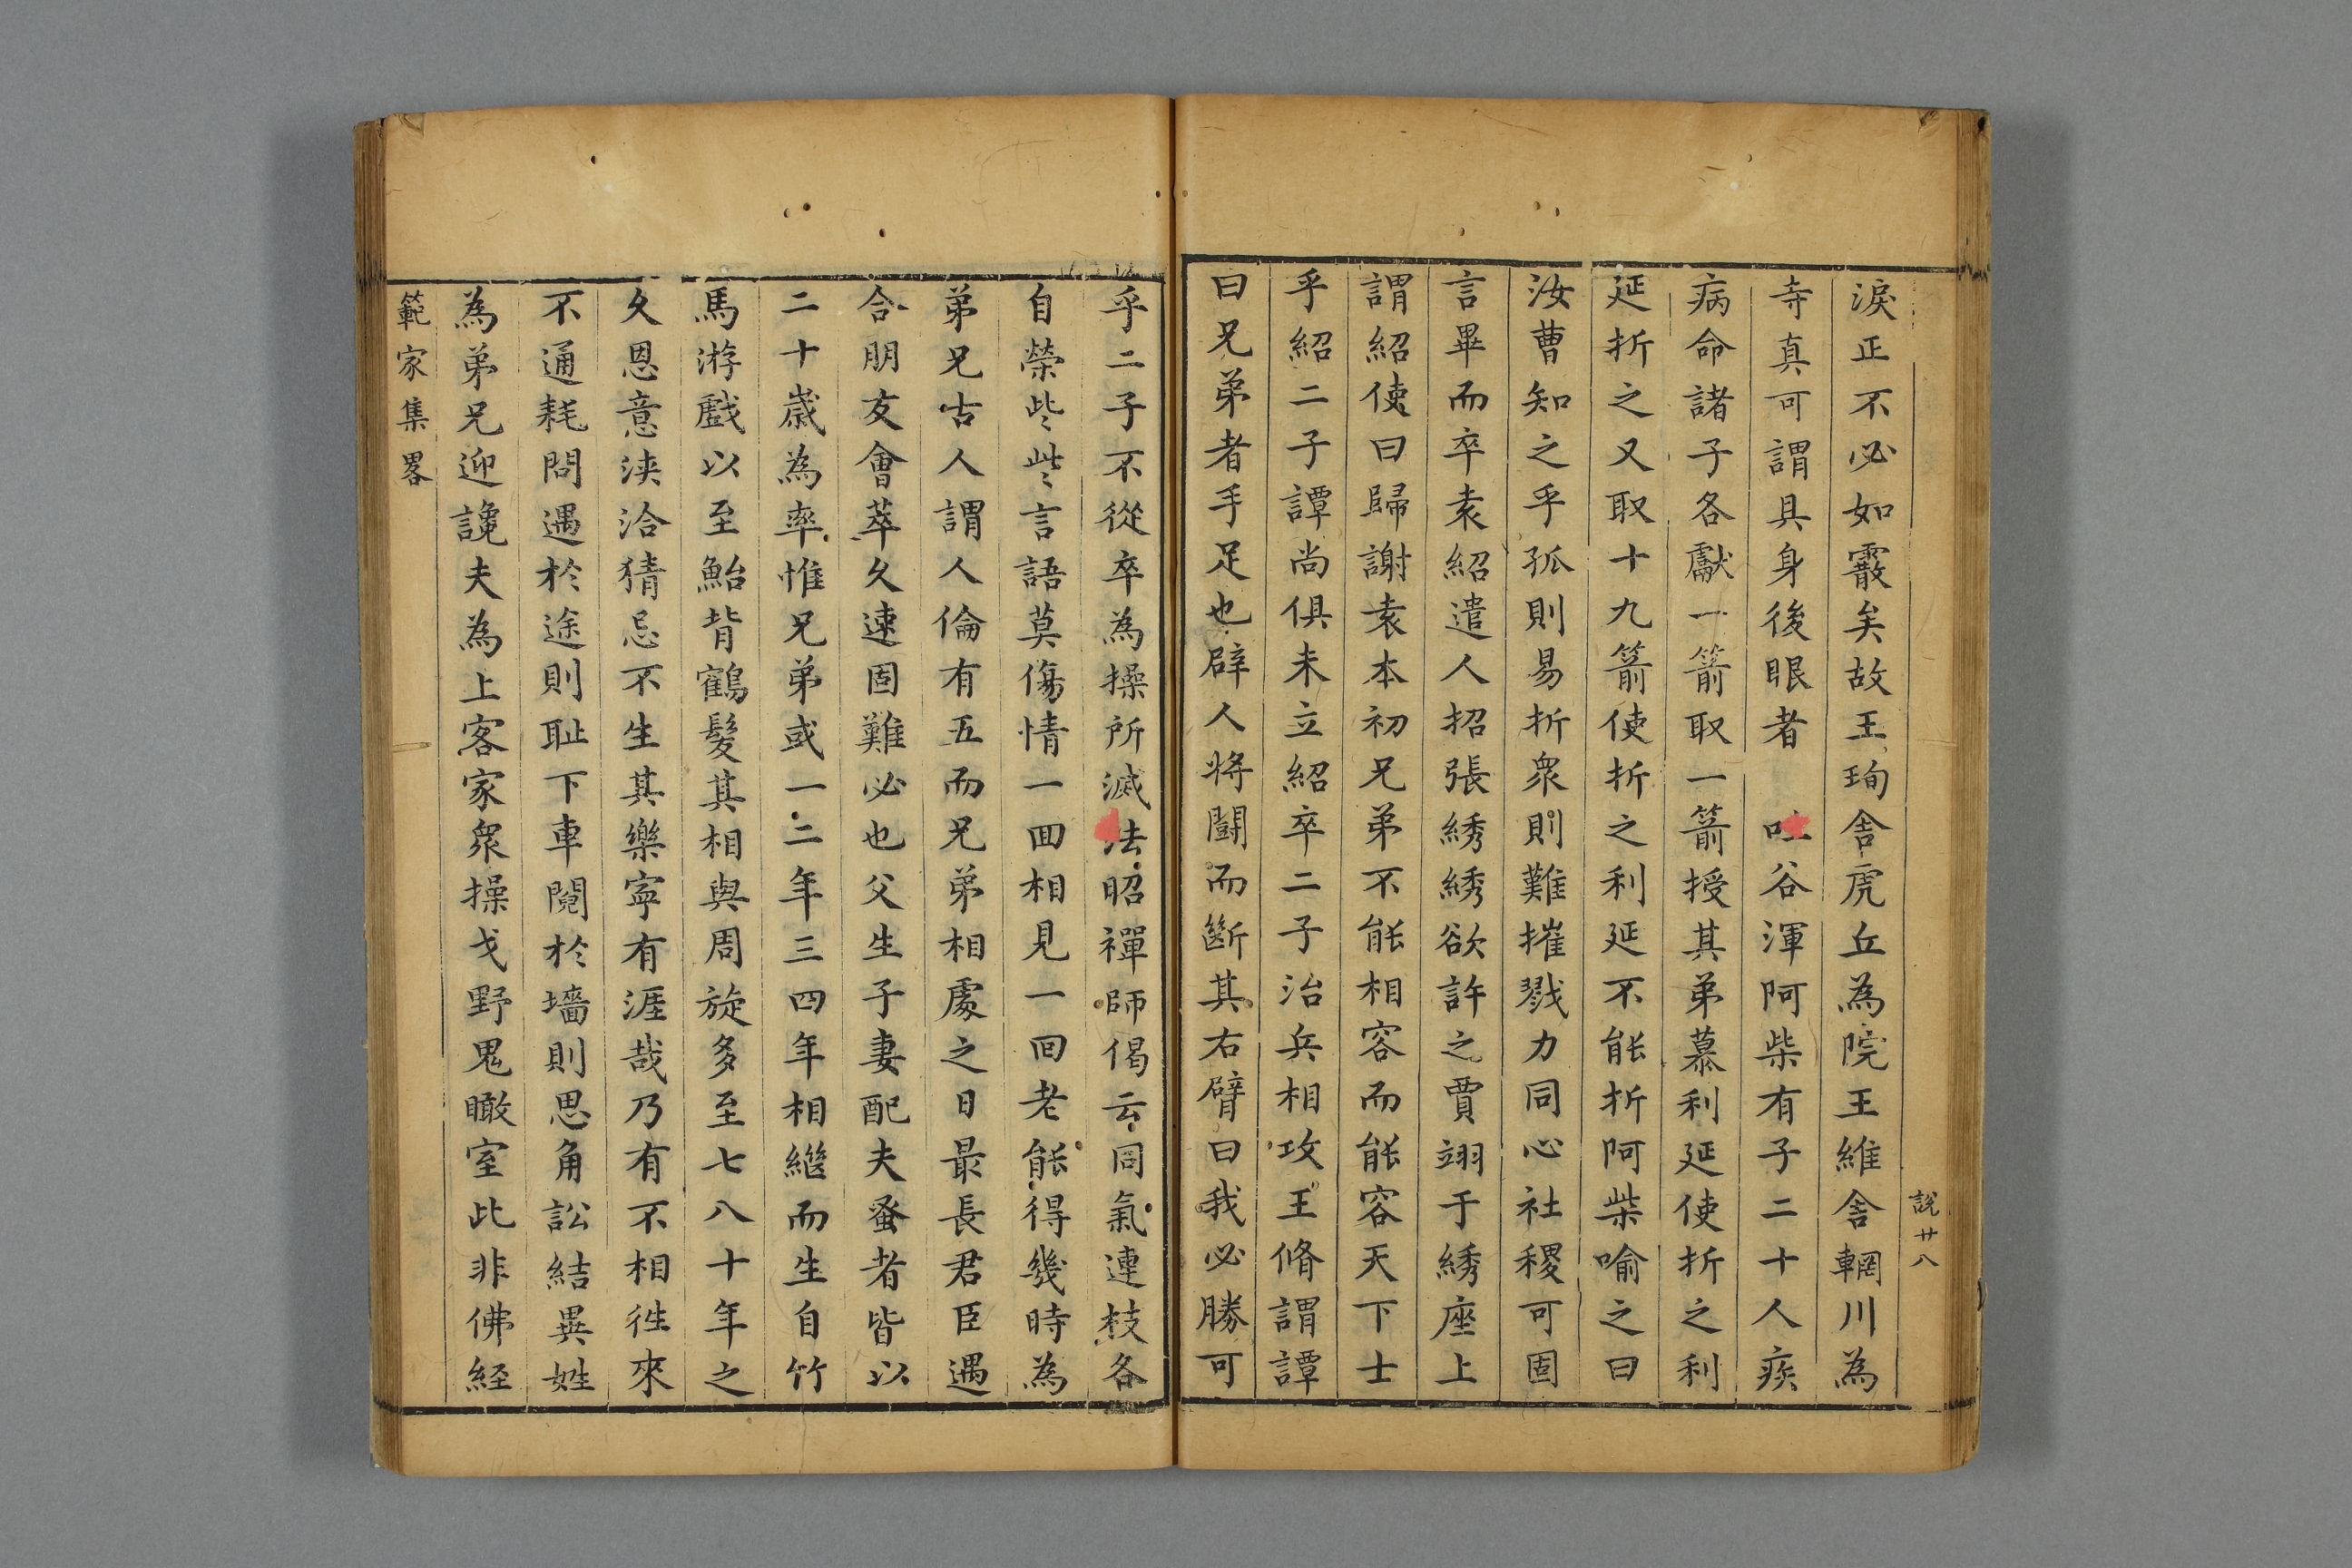 說廿八
淚正不必如霰矣故王珣舎虎丘為院王維舎輞川為
寺真可謂具身後眼者 吐谷渾阿柴有子二十人疾
病命諸子各獻一箭取一箭授其弟慕利延使折之利
延折之又取十九箭使折之利延不能折阿柴喻之曰
汝曹知之乎孤則易折衆則難摧戮力同心社稷可固
言畢而卒袁紹遣人招張綉綉欲許之賈翊于綉座上
謂紹使曰歸謝袁本初兄弟不能相容而能容天下士
乎紹二子譚尚俱未立紹卒二子治兵相攻王脩謂譚
曰兄弟者手足也辟人將鬬而斷其右臂曰我必勝可
乎二子不從卒為操所滅法昭禪師偈云同氣連枝各
自榮些些言語莫傷情一回相見一回老能得幾時為
弟兄古人謂人倫有五而兄弟相處之日最長君臣遇
合朋友會萃久速固難必也父生子妻配夫蚤者皆以
二十歲為率惟兄弟或一二年三四年相繼而生自竹
馬游戲以至鮐背鶴髮其相與周旋多至七八十年之
久恩意浹洽猜忌不生其樂寧有涯哉乃有不相徃來
不通耗問遇於途則耻下車鬩於墻則思角訟結異姓
為弟兄迎讒夫為上客家衆操戈野鬼瞰室此非佛経
範家集畧